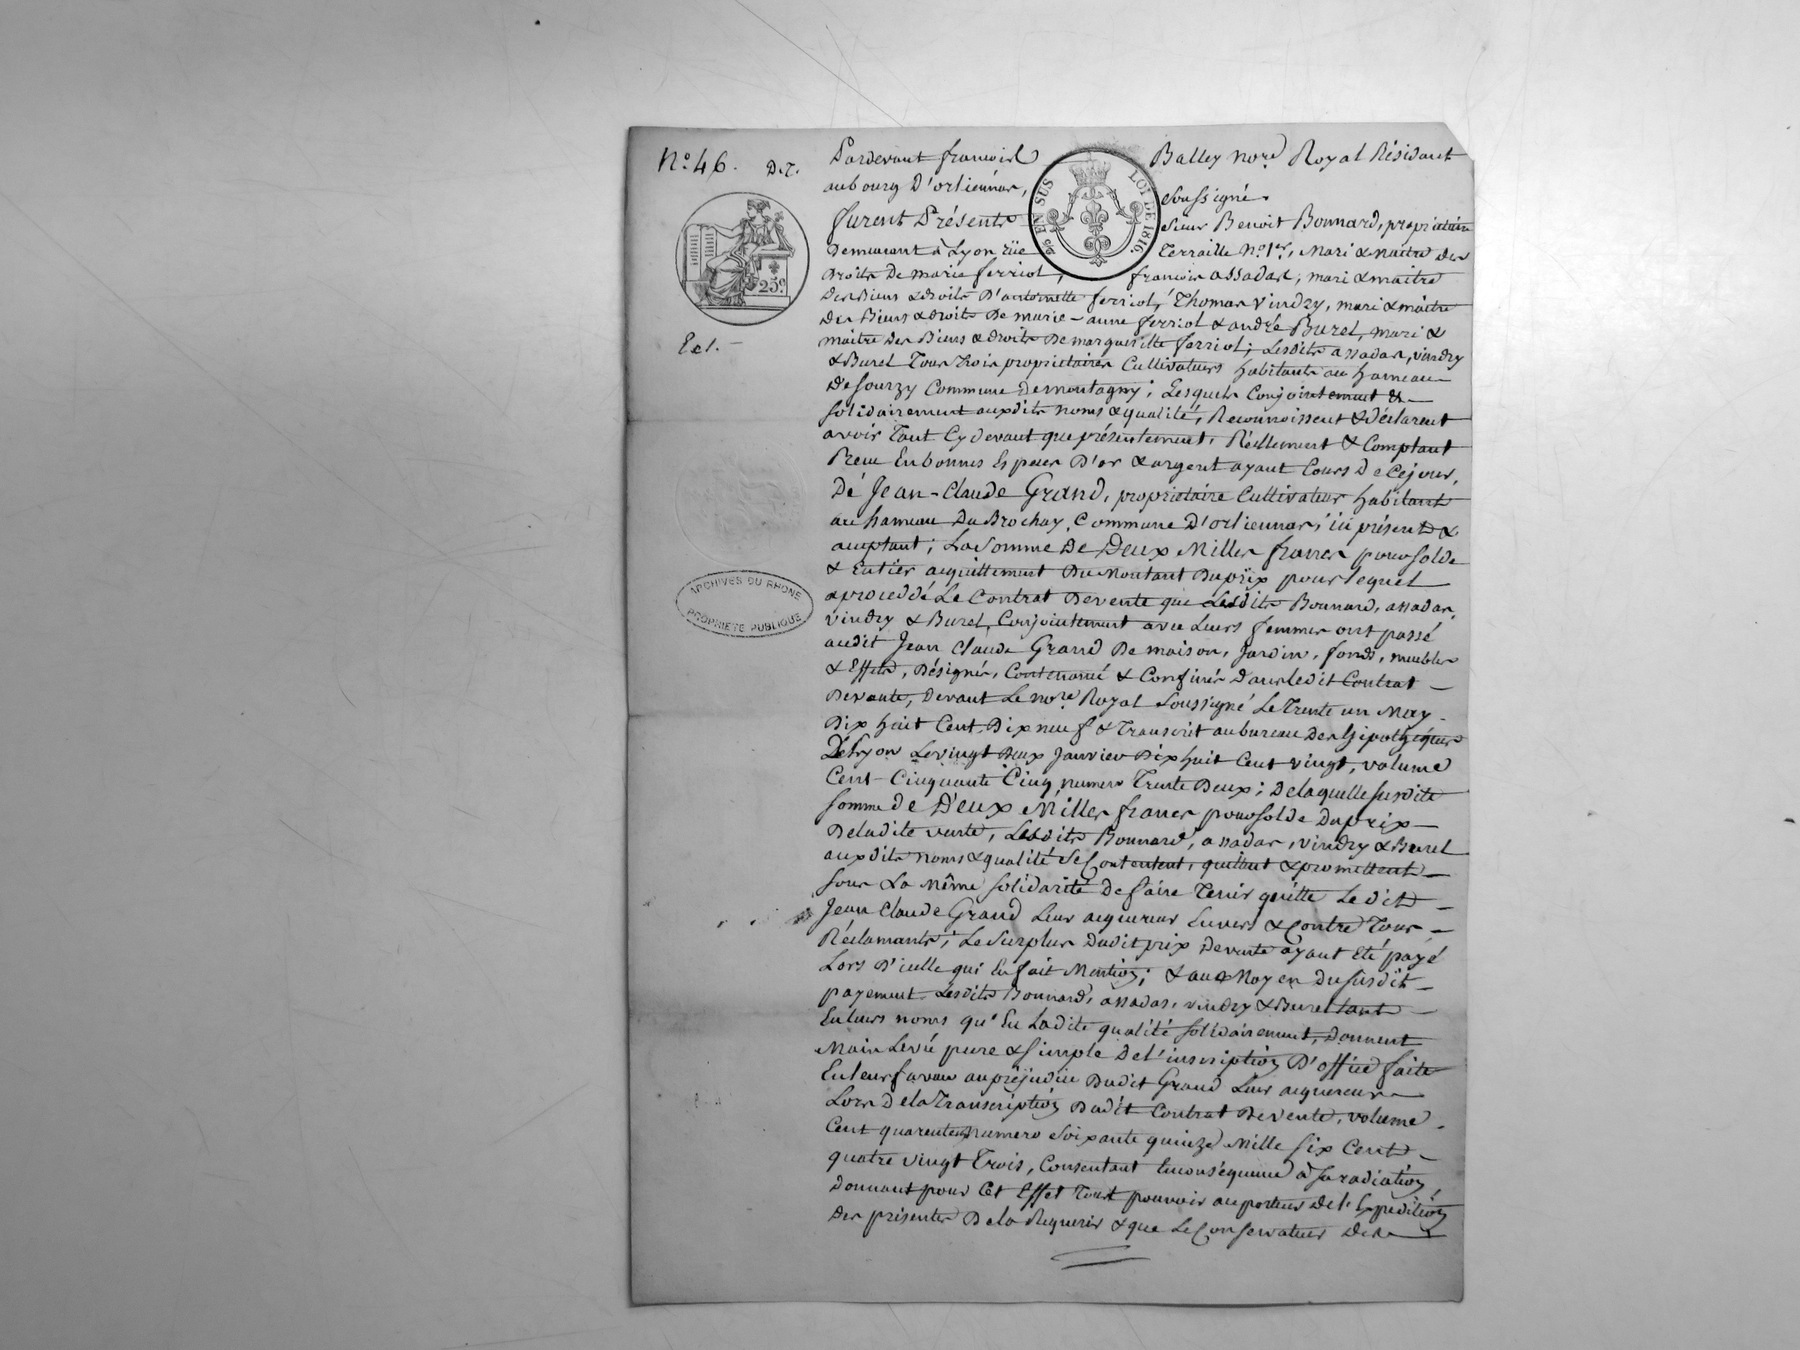 N.o 46. D.T.
Pardevant françois Balley no.re Royal Résidant
au bourg D'orliennas, soussigné.
furent Présents sieur Benoit Bonnard, propriétaire
Demeurant à Lyon rüe Terraille N.o 1.er, Mari & maitre des
Droits De marie ferriol, françois assadas, mari & maitre
Des Biens & droits D'antoinette ferriol, Thomas Vindry, mari & maitre
Des Biens & droits De marie-anne ferriol & andré Burel, mari &
maitre Des Biens & droits De margueritte ferriol; Lesdits assadas, vindry
& Burel Tous trois propriétaires Cultivateurs habitants au hameau
De Sourzy Commune De montagny; Lesquels Conjointement &
solidairement auxdits noms & qualité, Reconnoissent & déclarent
avoir Tant Cy devant que présentement, Réellement & Comptant
Reçu En bonnes Espèces D'or & argent ayant Cours De Cejour,
De Jean-Claude Grand, propriétaire Cultivateur habitant
au hameau Du Brochay, Commune D'orliennas ici présent &
acceptant; La Somme De Deux Milles francs pour solde
& Entier acquittement Du Montant Du prix pour lequel
a procédé Le Contrat De vente que Lesdits Bonnard, assadas,
vindry & Burel, Conjointement avec Leurs femmes ont passé
audit Jean Claude Grand De maison, Jardin, fonds, meubles
& Effets, Désignés, Contenancé & Confinés Dans ledit Contrat
De vente, Devant Le no.re Royal Soussigné Le Trente un May
Dix huit Cent Dix neuf & Transcrit au bureau Des hipothéques
De Lyon Le vingt Deux Janvier Dix huit Cent vingt, volume
Cent Cinquante Cinq numero Trente Deux; De laquelle susdite
somme de Deux Milles francs pour solde Du prix
De ladite vente, Lesdits Bonnard, assadas, vindry & Burel
auxdits noms & qualité Se Contentent, quittent & promettent
sous La Même solidarité De faire Tenir quitte Ledit
Jean Claude Grand Leur acquereur Envers & Contre Tous
Réclamants; Le Surplus Dudit prix De vente ayant Eté payé
Lors D'icelle qui En fait Mention; & au Moyen Du susdit
payement Lesdits Bonnard, assadas, vindry & Burel tant
En leurs noms qu'En Ladite qualité solidairement, Donnent
Main Levée pure & simple De l'inscription D'office faite
En leur faveur au préjudice Dudit Grand Leur acquereur
Lors De la Transcription Dudit Contrat De vente, volume
Cent quarente numero Soixante quinze Mille six Cent
quatre vingt Trois, Consentant En conséquence à sa radiation
Donnant pour Cet Effet Tout pouvoir au porteur De l'Expedition
Des présentes De la Requerir & que Le Conservateur Des
Ect.
25.c
25 EN SUS
LOI DE 1816.
ARCHIVES DU RHONE
PROPRIETE PUBLIQUE